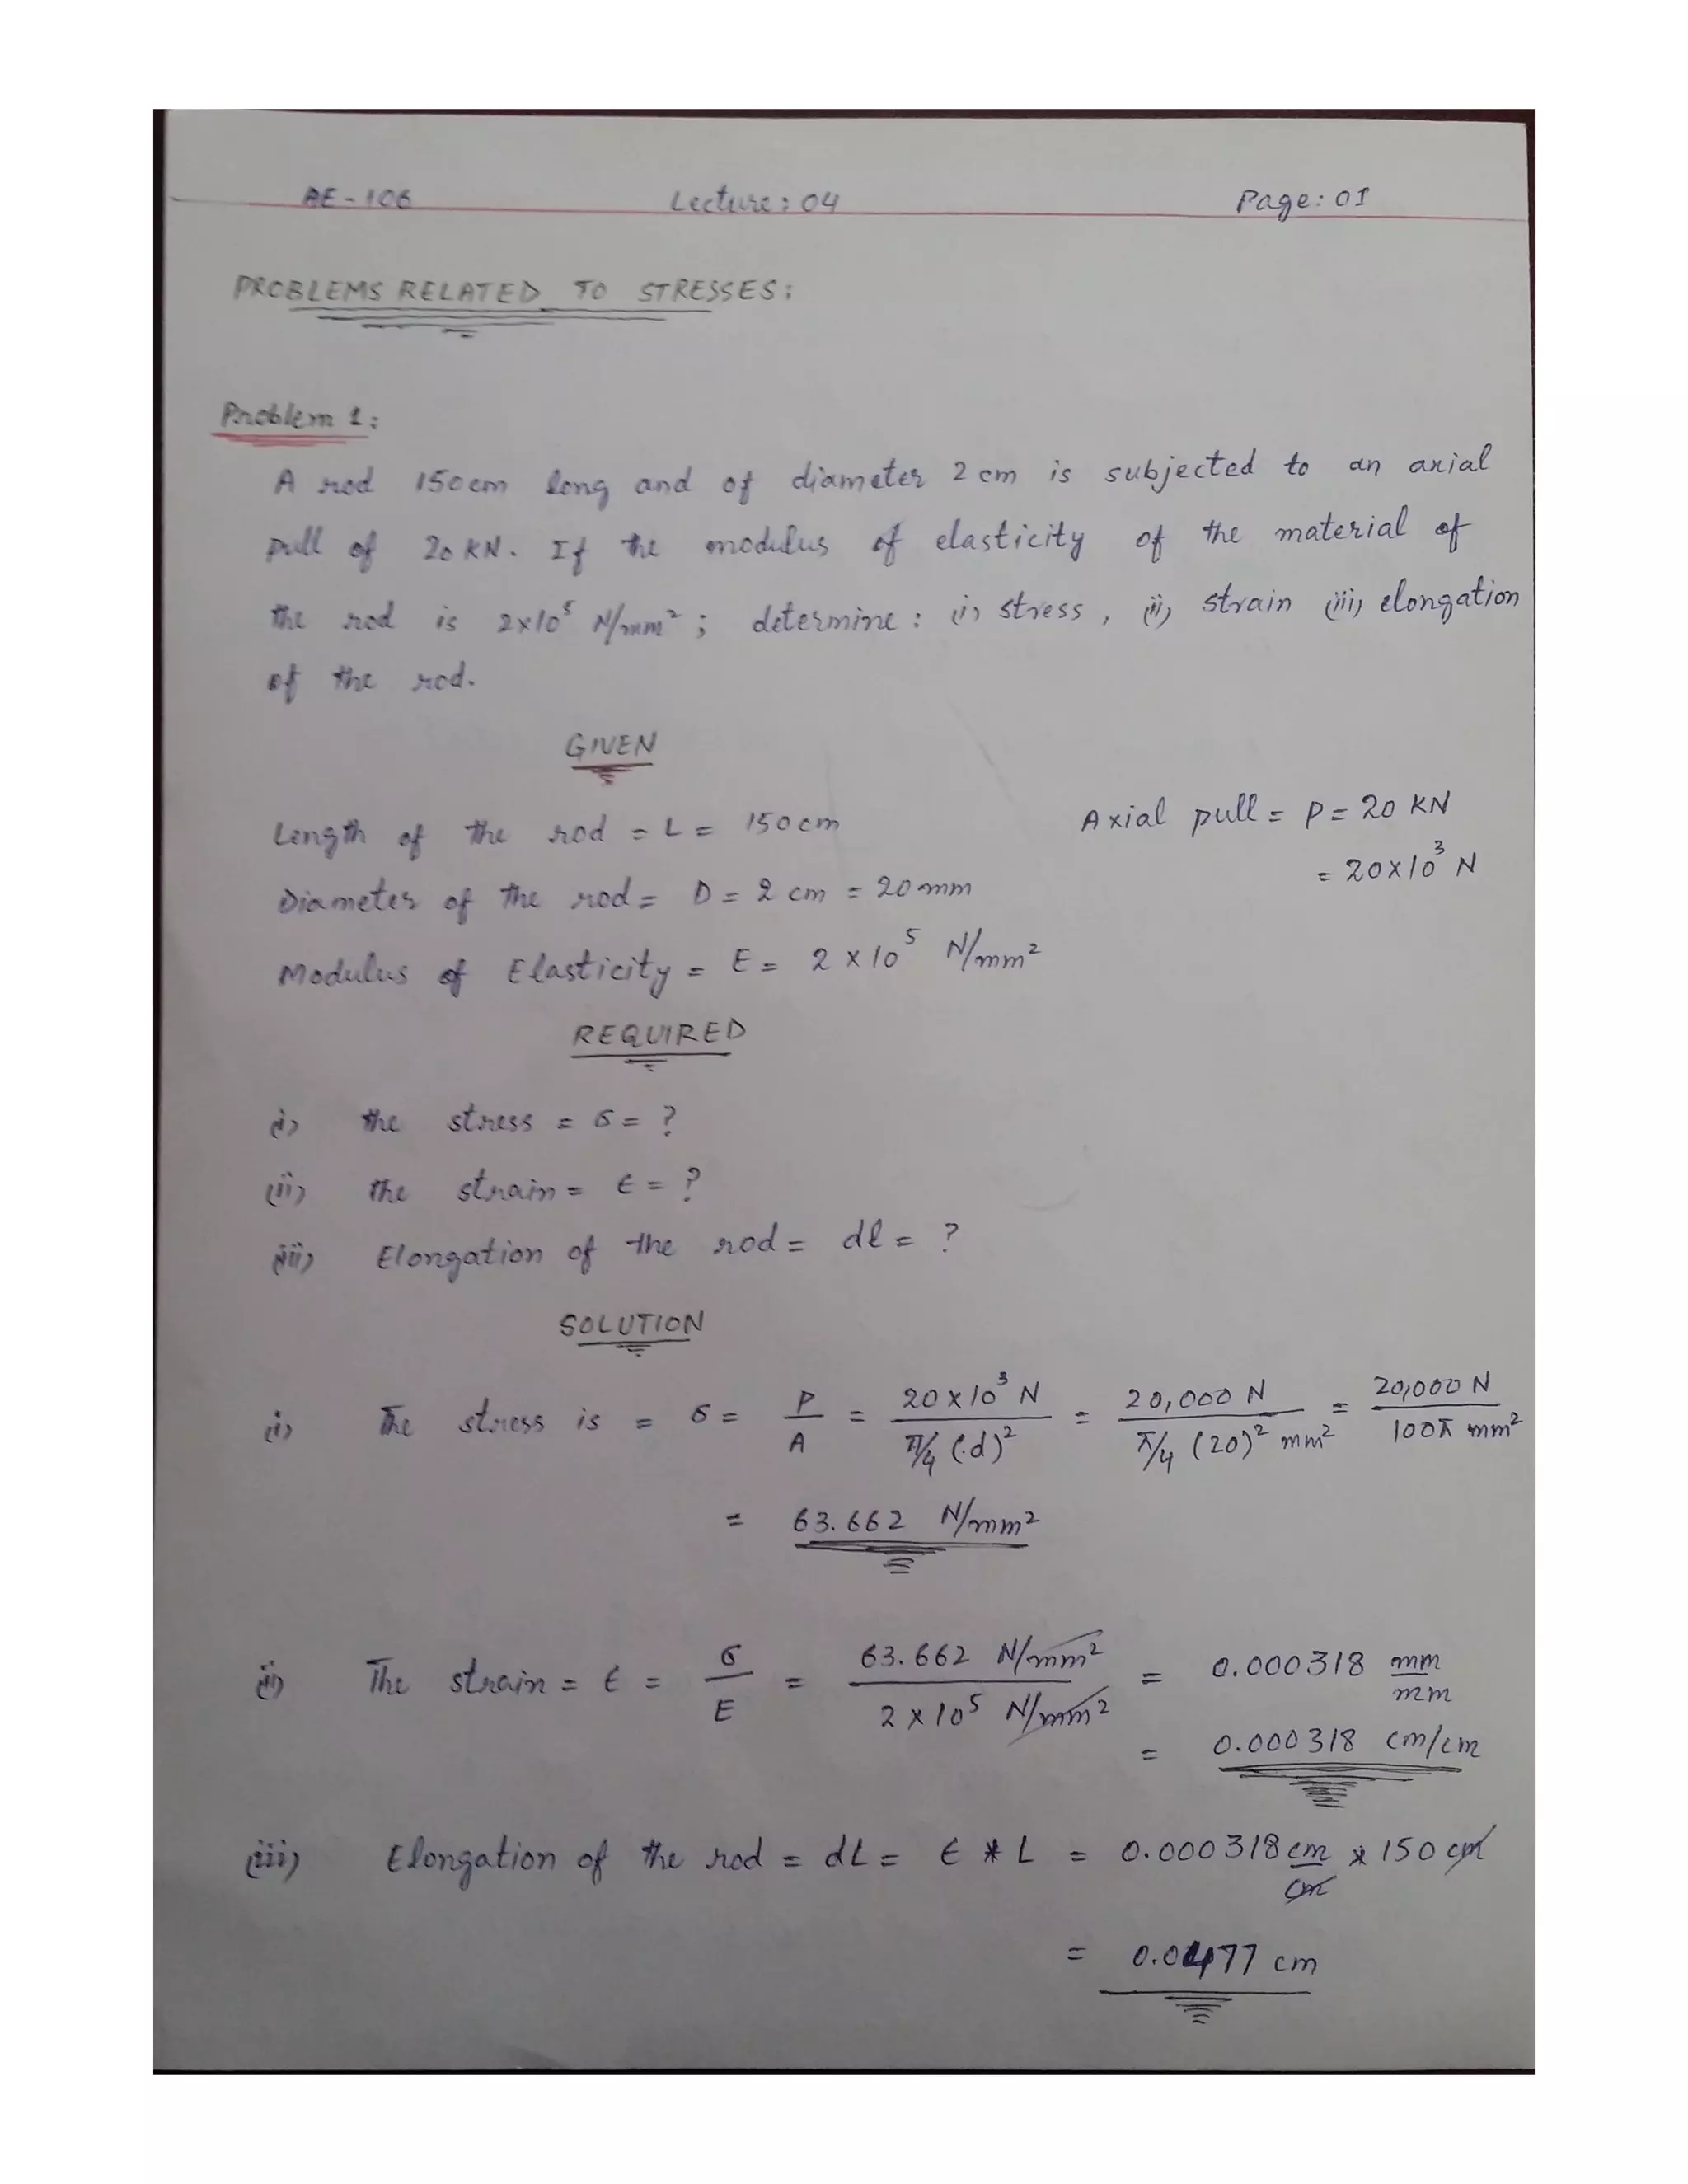 AE-106 Lecture: 04 Page: 01
PROBLEMS RELATED TO STRESSES:
Problem 1:
A rod 150cm long and of diameter 2 cm is subjected to an axial
pull of 20 KN. If the modulus of elasticity of the material of
the rod is 2x10⁵ N/mm² ; determine : (i) stress , (ii) strain (iii) elongation
of the rod.
GIVEN
Length of the rod = L = 150cm Axial pull = P = 20 KN
= 20x10³ N
Diameter of the rod = D = 2 cm = 20 mm
Modulus of Elasticity = E = 2 x 10⁵ N/mm²
REQUIRED
(i) the stress = σ = ?
(ii) the strain = ϵ = ?
(iii) Elongation of the rod = dl = ?
SOLUTION
(i) The stress is = σ = P/A = 20x10³ N / π/4 (d)² = 20,000 N / π/4 (20)² mm² = 20,000 N / 100π mm²
= 63.662 N/mm²
(ii) The strain = ϵ = σ/E = 63.662 N/mm² / 2 x 10⁵ N/mm² = 0.000318 mm/mm
= 0.000318 cm/cm
(iii) Elongation of the rod = dL = ϵ * L = 0.000318 cm/cm * 150 cm
= 0.0477 cm